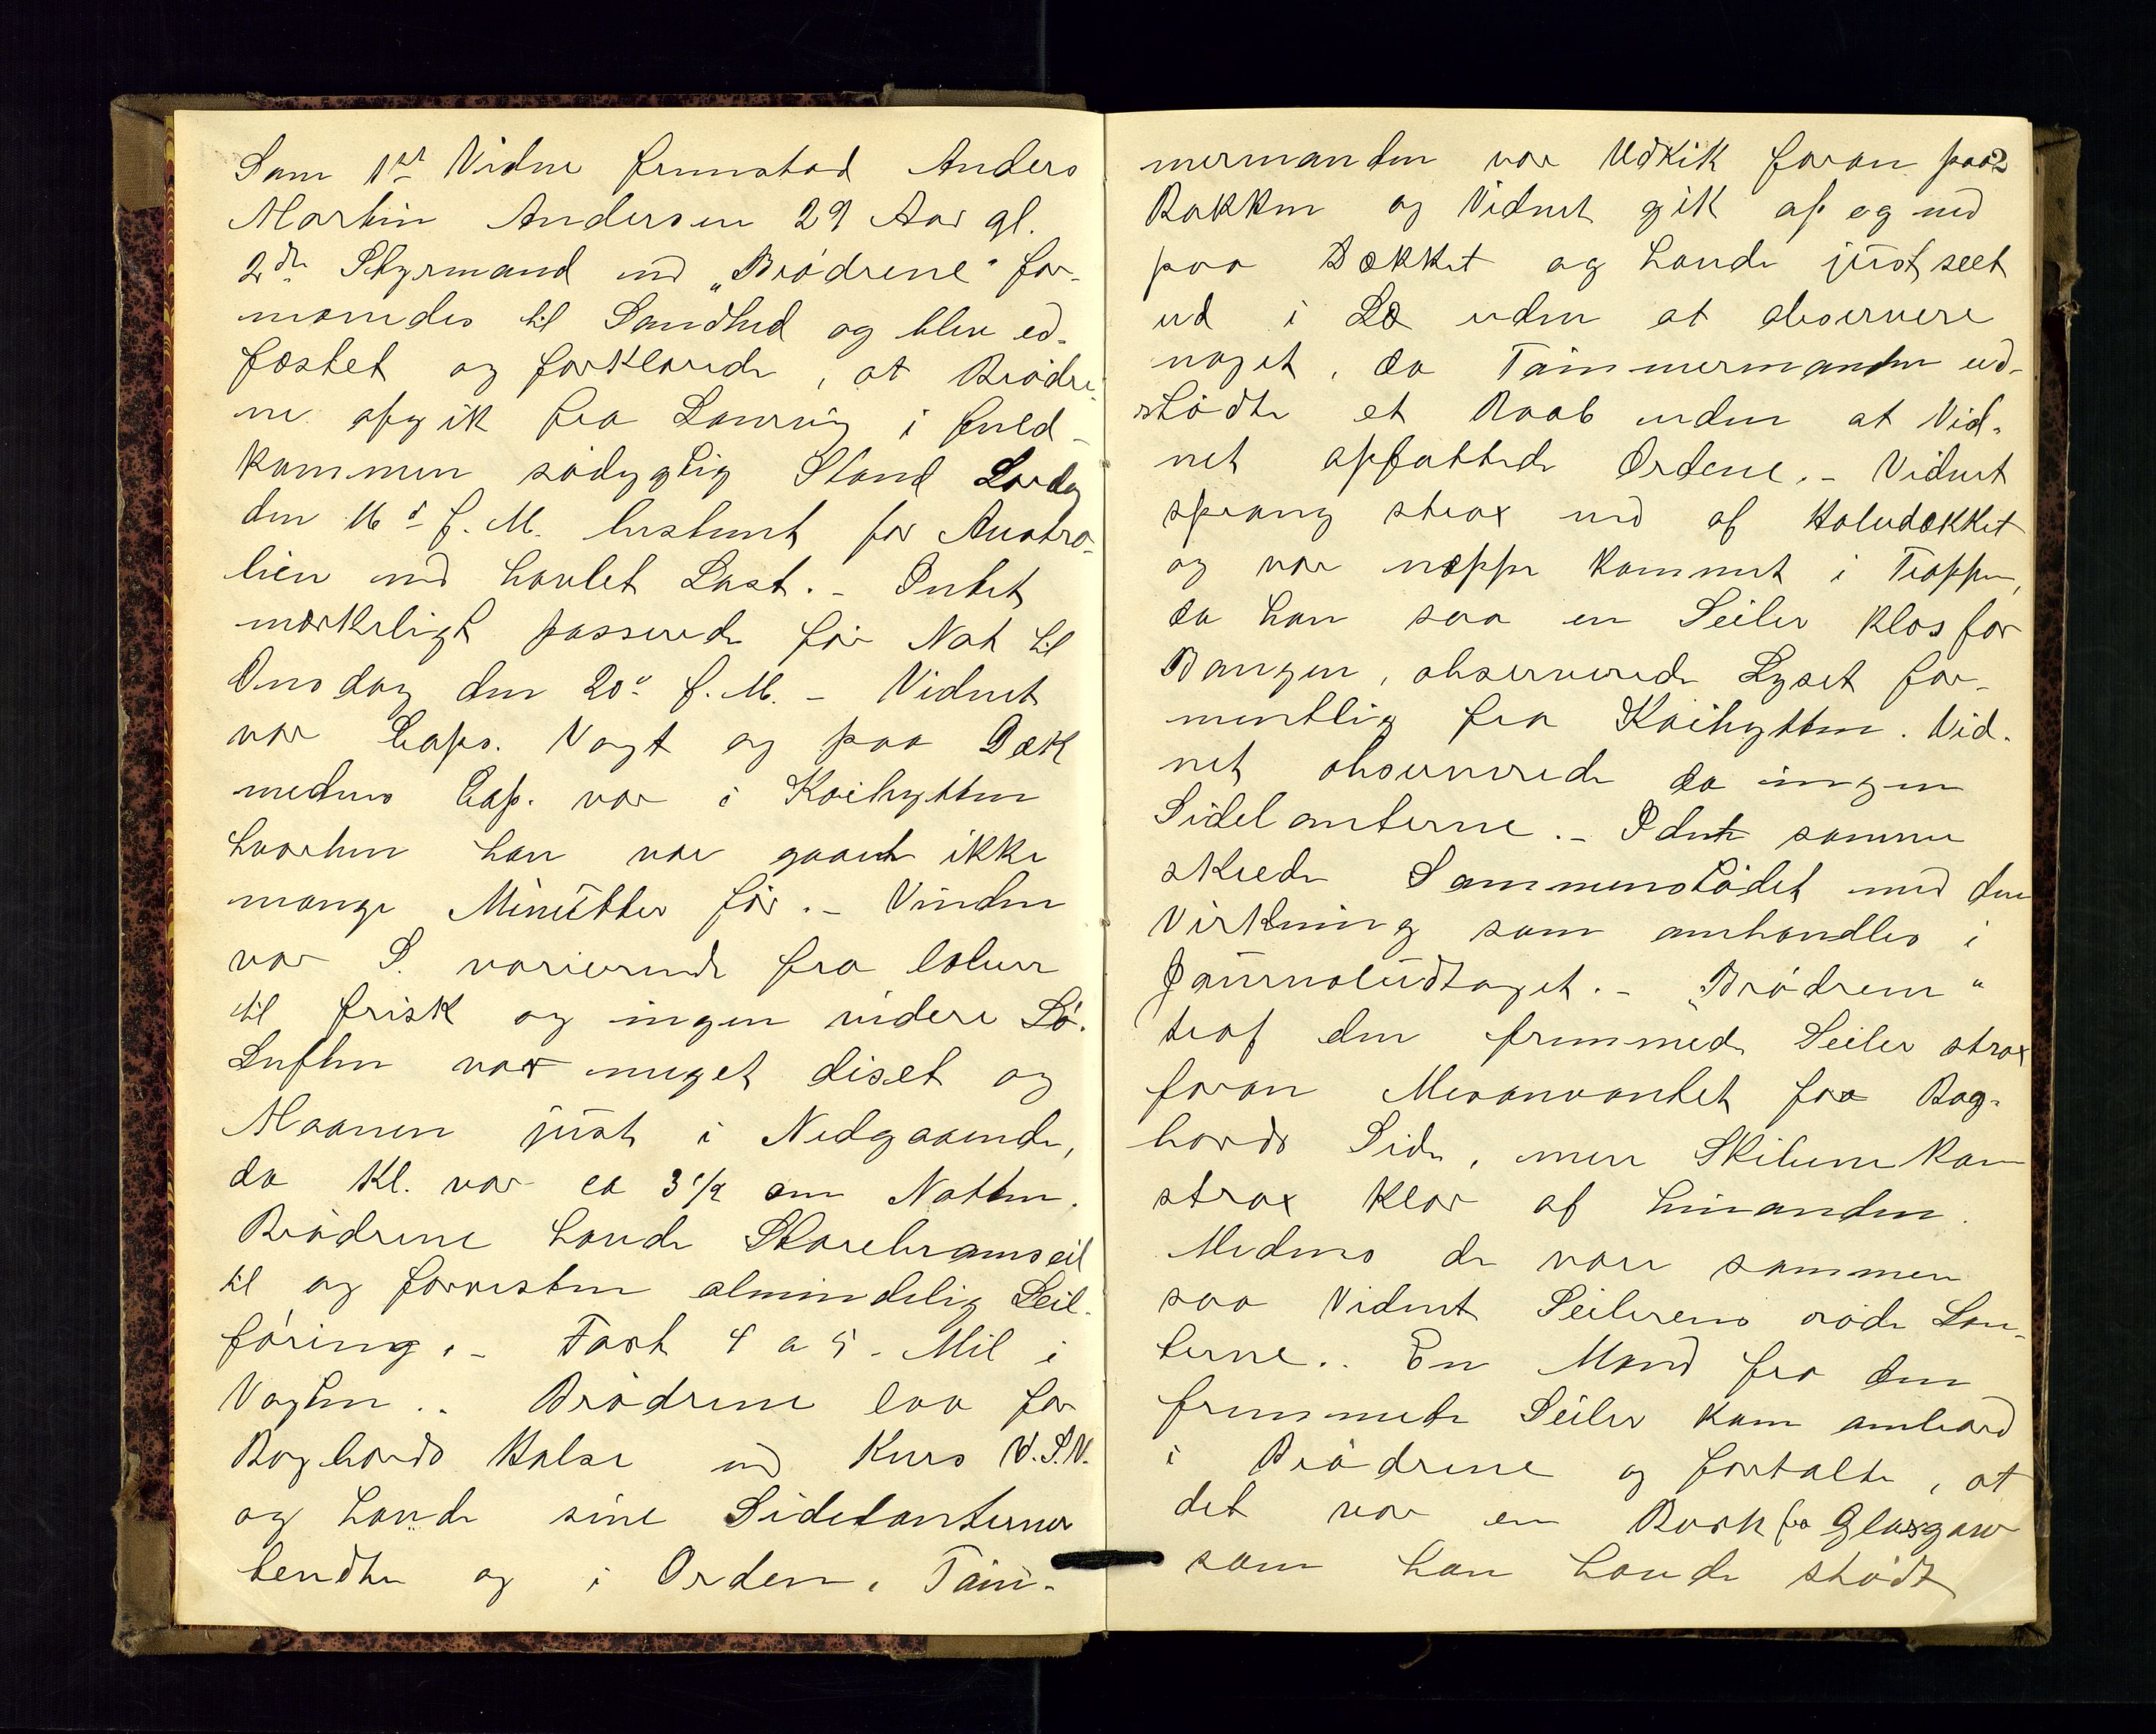 Som 1st Vidne fremstod Anders
Martin Andersen 29 Aar gl.
2den Styrmand med „Brødrene“ for-
manedes til Sandhed og blev ed-
fæstet og forklarede, at Brødre-
ne afgik fra Laurvig i fuld-
kommen sødygtig Stand Lørdag
den 16d f. M. bestemt for Austra-
lien med høvlet Last. – Intet
mærkeligt passerede før Nat til
Onsdag den 20d f. M. – Vidnet
var Caps. Vagt og paa Dæk
medens Cap. var i Kaihytten
hvorhen han var gaaet ikke
mange Minutter før. – Vinden
var S. varierende fra laber
til frisk og ingen videre Sø.
Luften var meget diset og
Maanen just i Nedgaaende,
da Kl. var ca 3 1/2 om Natten.
Brødrene havde Storebramseil
til og forresten almindelig Seil-
føring. – Fart 4 a 5 Mil i
Vagten. . Brødrene laa for
Bagbords Halse med Kurs V.S.V.
og havde sine Sidelanterner
tendte og i Orden. Tøm-
2
mermanden var Udkik foran paa
Bakken og Vidnet gik af og ned
paa Dækket og havde just seet
ud i Læ uden at observere
noget, da Tømmermanden ud-
stødte et Raab uden at Vid-
net opfattede Ordene. – Vidnet
sprang strax ned af Halvdækket
og var neppe kommet i Trappen,
da han saa en Seiler klos for
Baugen, observerede Lyset for-
mentlig fra Kaihytten. Vid-
net observerede da ingen
Sidelanterne. – I det samme
skede Sammenstødet med den
Virkning som omhandles i
Journaludtaget. – „Brødrene“
traf den fremmede Seiler strax
foran Mesanvantet paa Bag-
bords Side, men Skibene kom
strax klar af hinanden.
Medens de vare sammen
saa Vidnet Seilerens røde Lan-
terne. . En Mand fra den
fremmede Seiler kom ombord
i Brødrene og fortalte, at
det var en Bark fra Glasgow
som han havde stødt